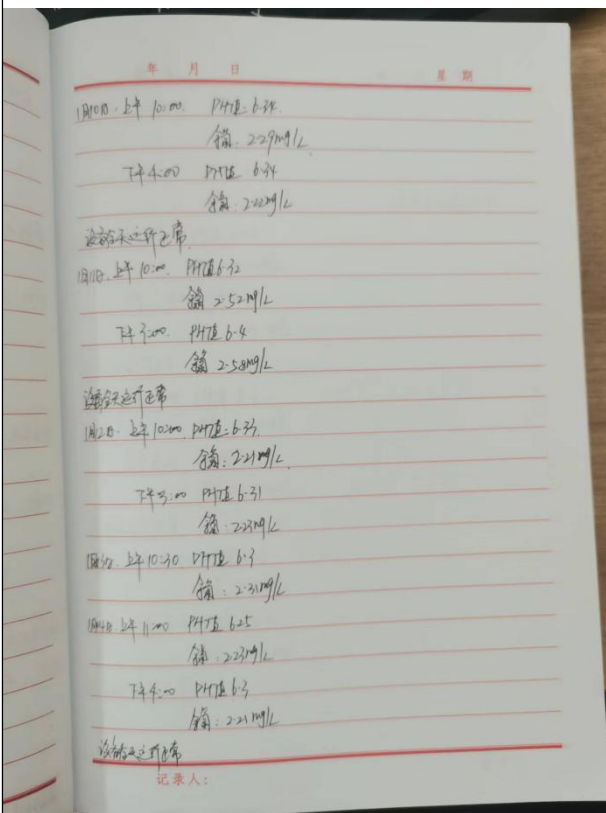 年 月 日 星 期
1月10日. 上午 10:00. PH值: 6.34.
余氯: 2.29mg/L
下午4:00 PH值 6.34
余氯 2.22mg/L
设备全天运行正常.
1月11日. 上午 10:00. PH值 6.32
余氯 2.52mg/L
下午3:00. PH值 6.4
余氯 2.58mg/L
设备全天运行正常
1月12日. 上午 10:00 PH值: 6.33.
余氯: 2.21mg/L
下午3:00 PH值 6.31
余氯: 2.23mg/L
上午10:30 PH值 6.3
余氯: 2.31mg/L
1月14日 上午 11:00 PH值 6.25
余氯: 2.23mg/L
下午4:00 PH值 6.3
余氯: 2.21mg/L
设备全天运行正常
记录人: